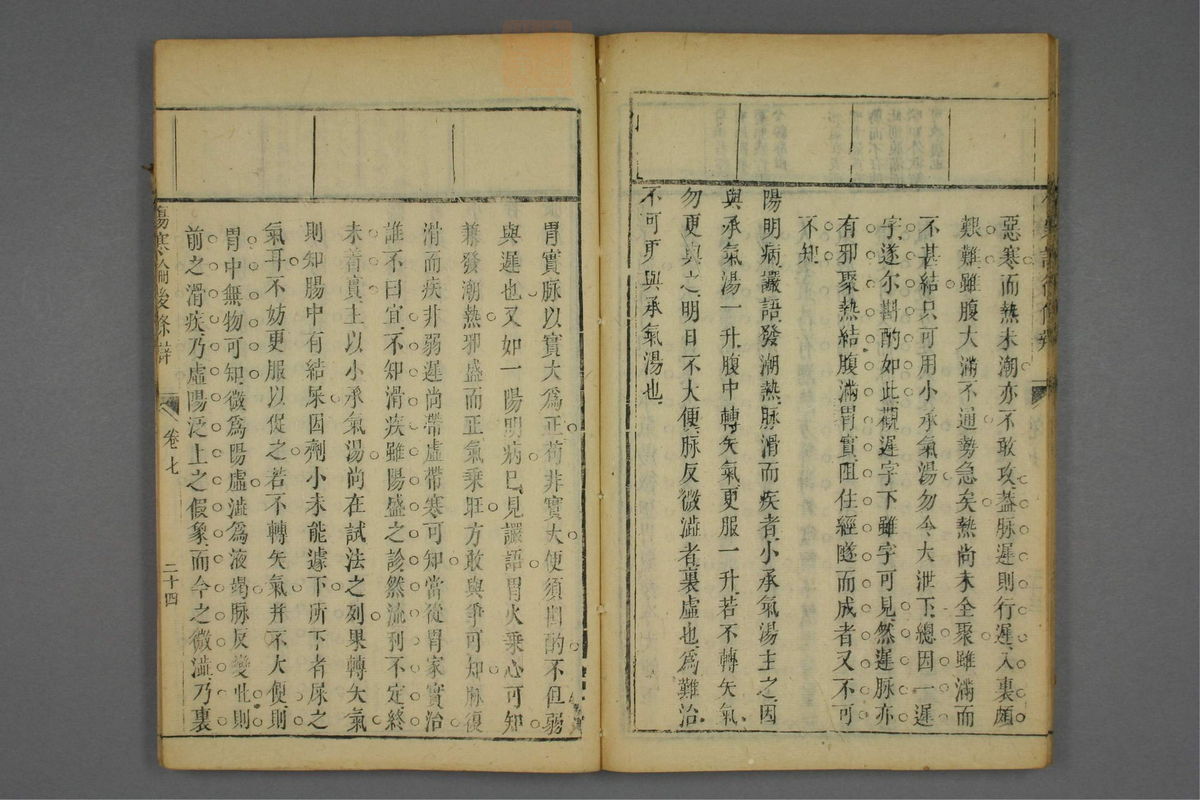 惡寒而熱未潮亦不敢攻蓋脉遲則行遲入裏頗
艱難雖腹大滿不通勢急矣熱尚未全聚雖滿而
不甚結只可用小承氣湯勿令大泄下總因一遲
字遂尔斟酌如此觀遲字下雖字可見然遲脉亦
有邪聚熱結腹滿胃實阻住經隧而成者又不可
不知
陽明病讝語發潮熱脉滑而疾者小承氣湯主之因
與承氣湯一升腹中轉矢氣更服一升若不轉矢氣
勿更與之明日不大便脉反微澁者裏虛也爲難治
不可更與承氣湯也
胃實脉以實大爲正荀非實大便須斟酌不但弱
與遲也又如一陽明病巳見讝語胃火乗心可知
兼發潮熱邪盛而正氣乗旺方敢與爭可知脉復
滑而疾非弱遲尚帶虛帶寒可知當從胃家實治
誰不曰宜不知滑疾雖陽盛之診然流利不定終
未着實主以小承氣湯尚在試法之列果轉矢氣
則知腸中有結屎因劑小未能遽下所下者屎之
氣耳不妨更服以促之若不轉矢氣并不大便則
胃中無物可知微爲陽虛澁爲液竭脉反變此則
前之滑疾乃虛陽泛上之假象而今之微澁乃裏
傷寒論後條辯
卷七
二十四